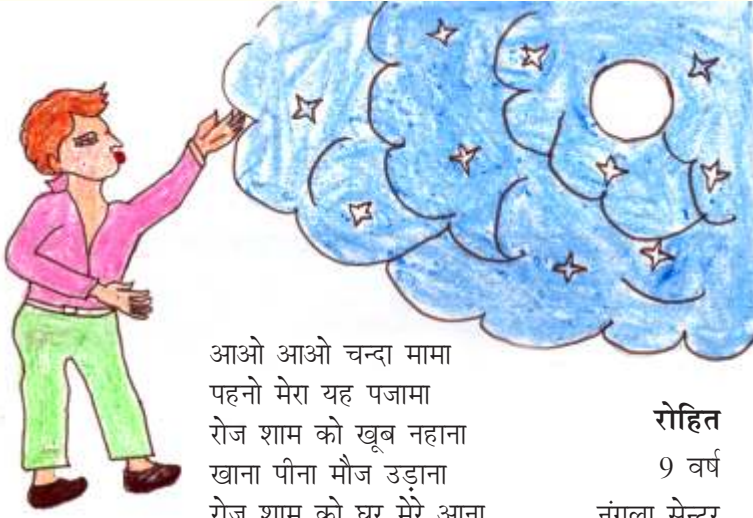 आओ आओ चन्दा मामा
पहनो मेरा यह पजामा
रोज शाम को खूब नहाना
खाना पीना मौज उड़ाना
रोज शाम को घर मेरे आना
रोहित
9 वर्ष
नंगला सेन्टर